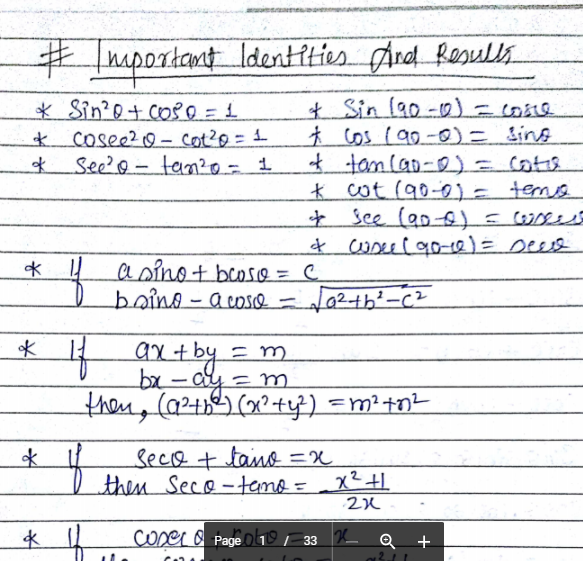 # Important Identities And Results
* Sin²θ + cos²θ = 1
* cosec²θ - cot²θ = 1
* Sec²θ - tan²θ = 1
* Sin (90-θ) = cosθ
* Cos (90-θ) = Sinθ
* tan (90-θ) = cotθ
* cot (90-θ) = tanθ
* Sec (90-θ) = cosecθ
* cosec (90-θ) = secθ
* If a sinθ + b cosθ = C
b sinθ - a cosθ = √a²+b²-c²
* If ax + by = m
bx - ay = m
then, (a²+b²) (x²+y²) = m²+n²
* If Secθ + tanθ = x
then Secθ - tanθ = x²+1
2x
* If cosec θ + cotθ = x
Page 1 / 33 — +